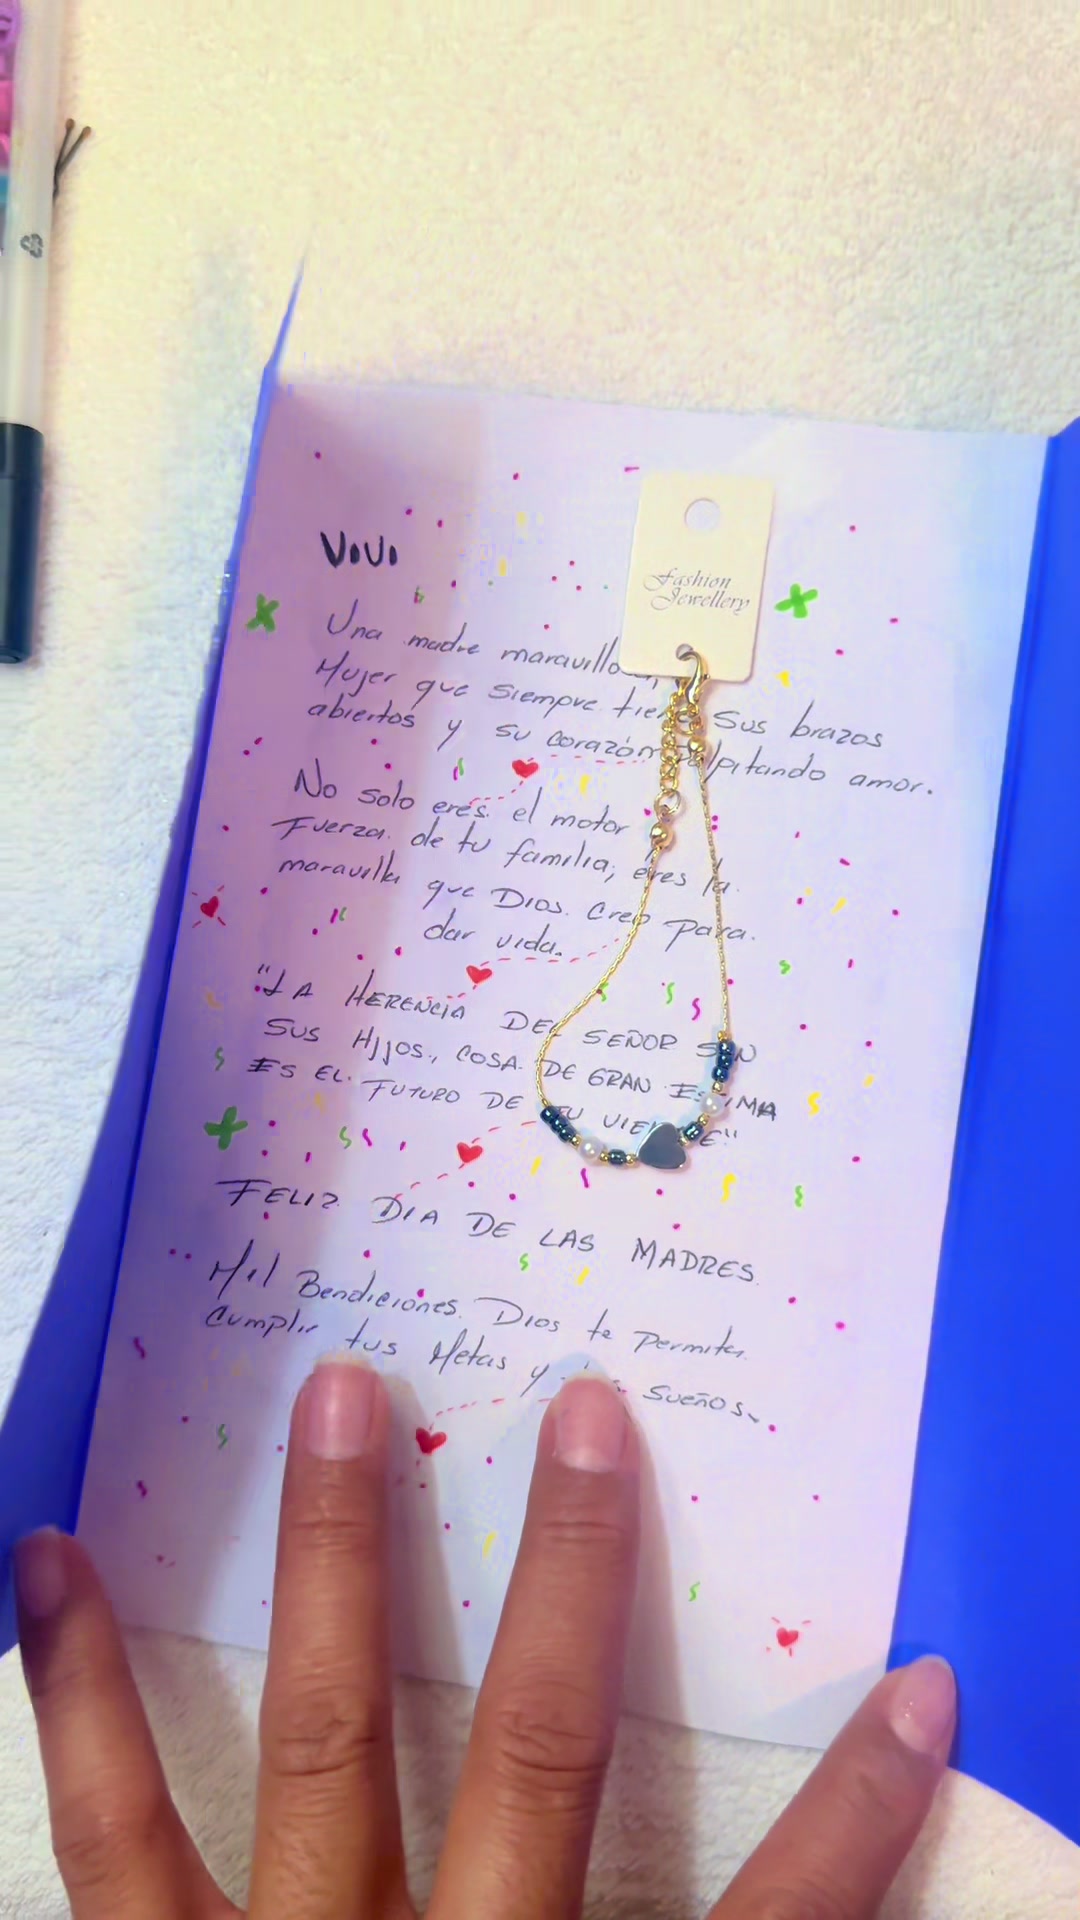 VIVI
Fashion
Jewellery
Una madre
Mujer que siempre tiene sus brazos
abiertos y su corazón palpitando amor.
No solo eres el motor
Fuerza de tu familia; eres la
maravilla que Dios Creo para
dar vida.
"LA HERENCIA DEL SEÑOR SON
SUS HIJOS, COSA DE GRAN ESTIMA
ES EL FUTURO DE TU VIENTRE"
FELIZ DIA DE LAS MADRES.
Mil Bendiciones. Dios te permita
cumplir tus Metas y sueños.